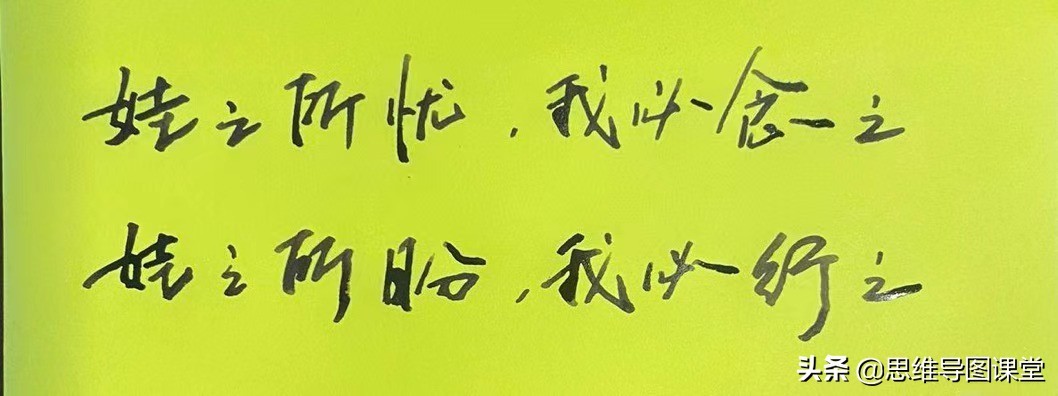 娃之所忧，我必念之
娃之所盼，我必行之
头条 @思维导图课堂